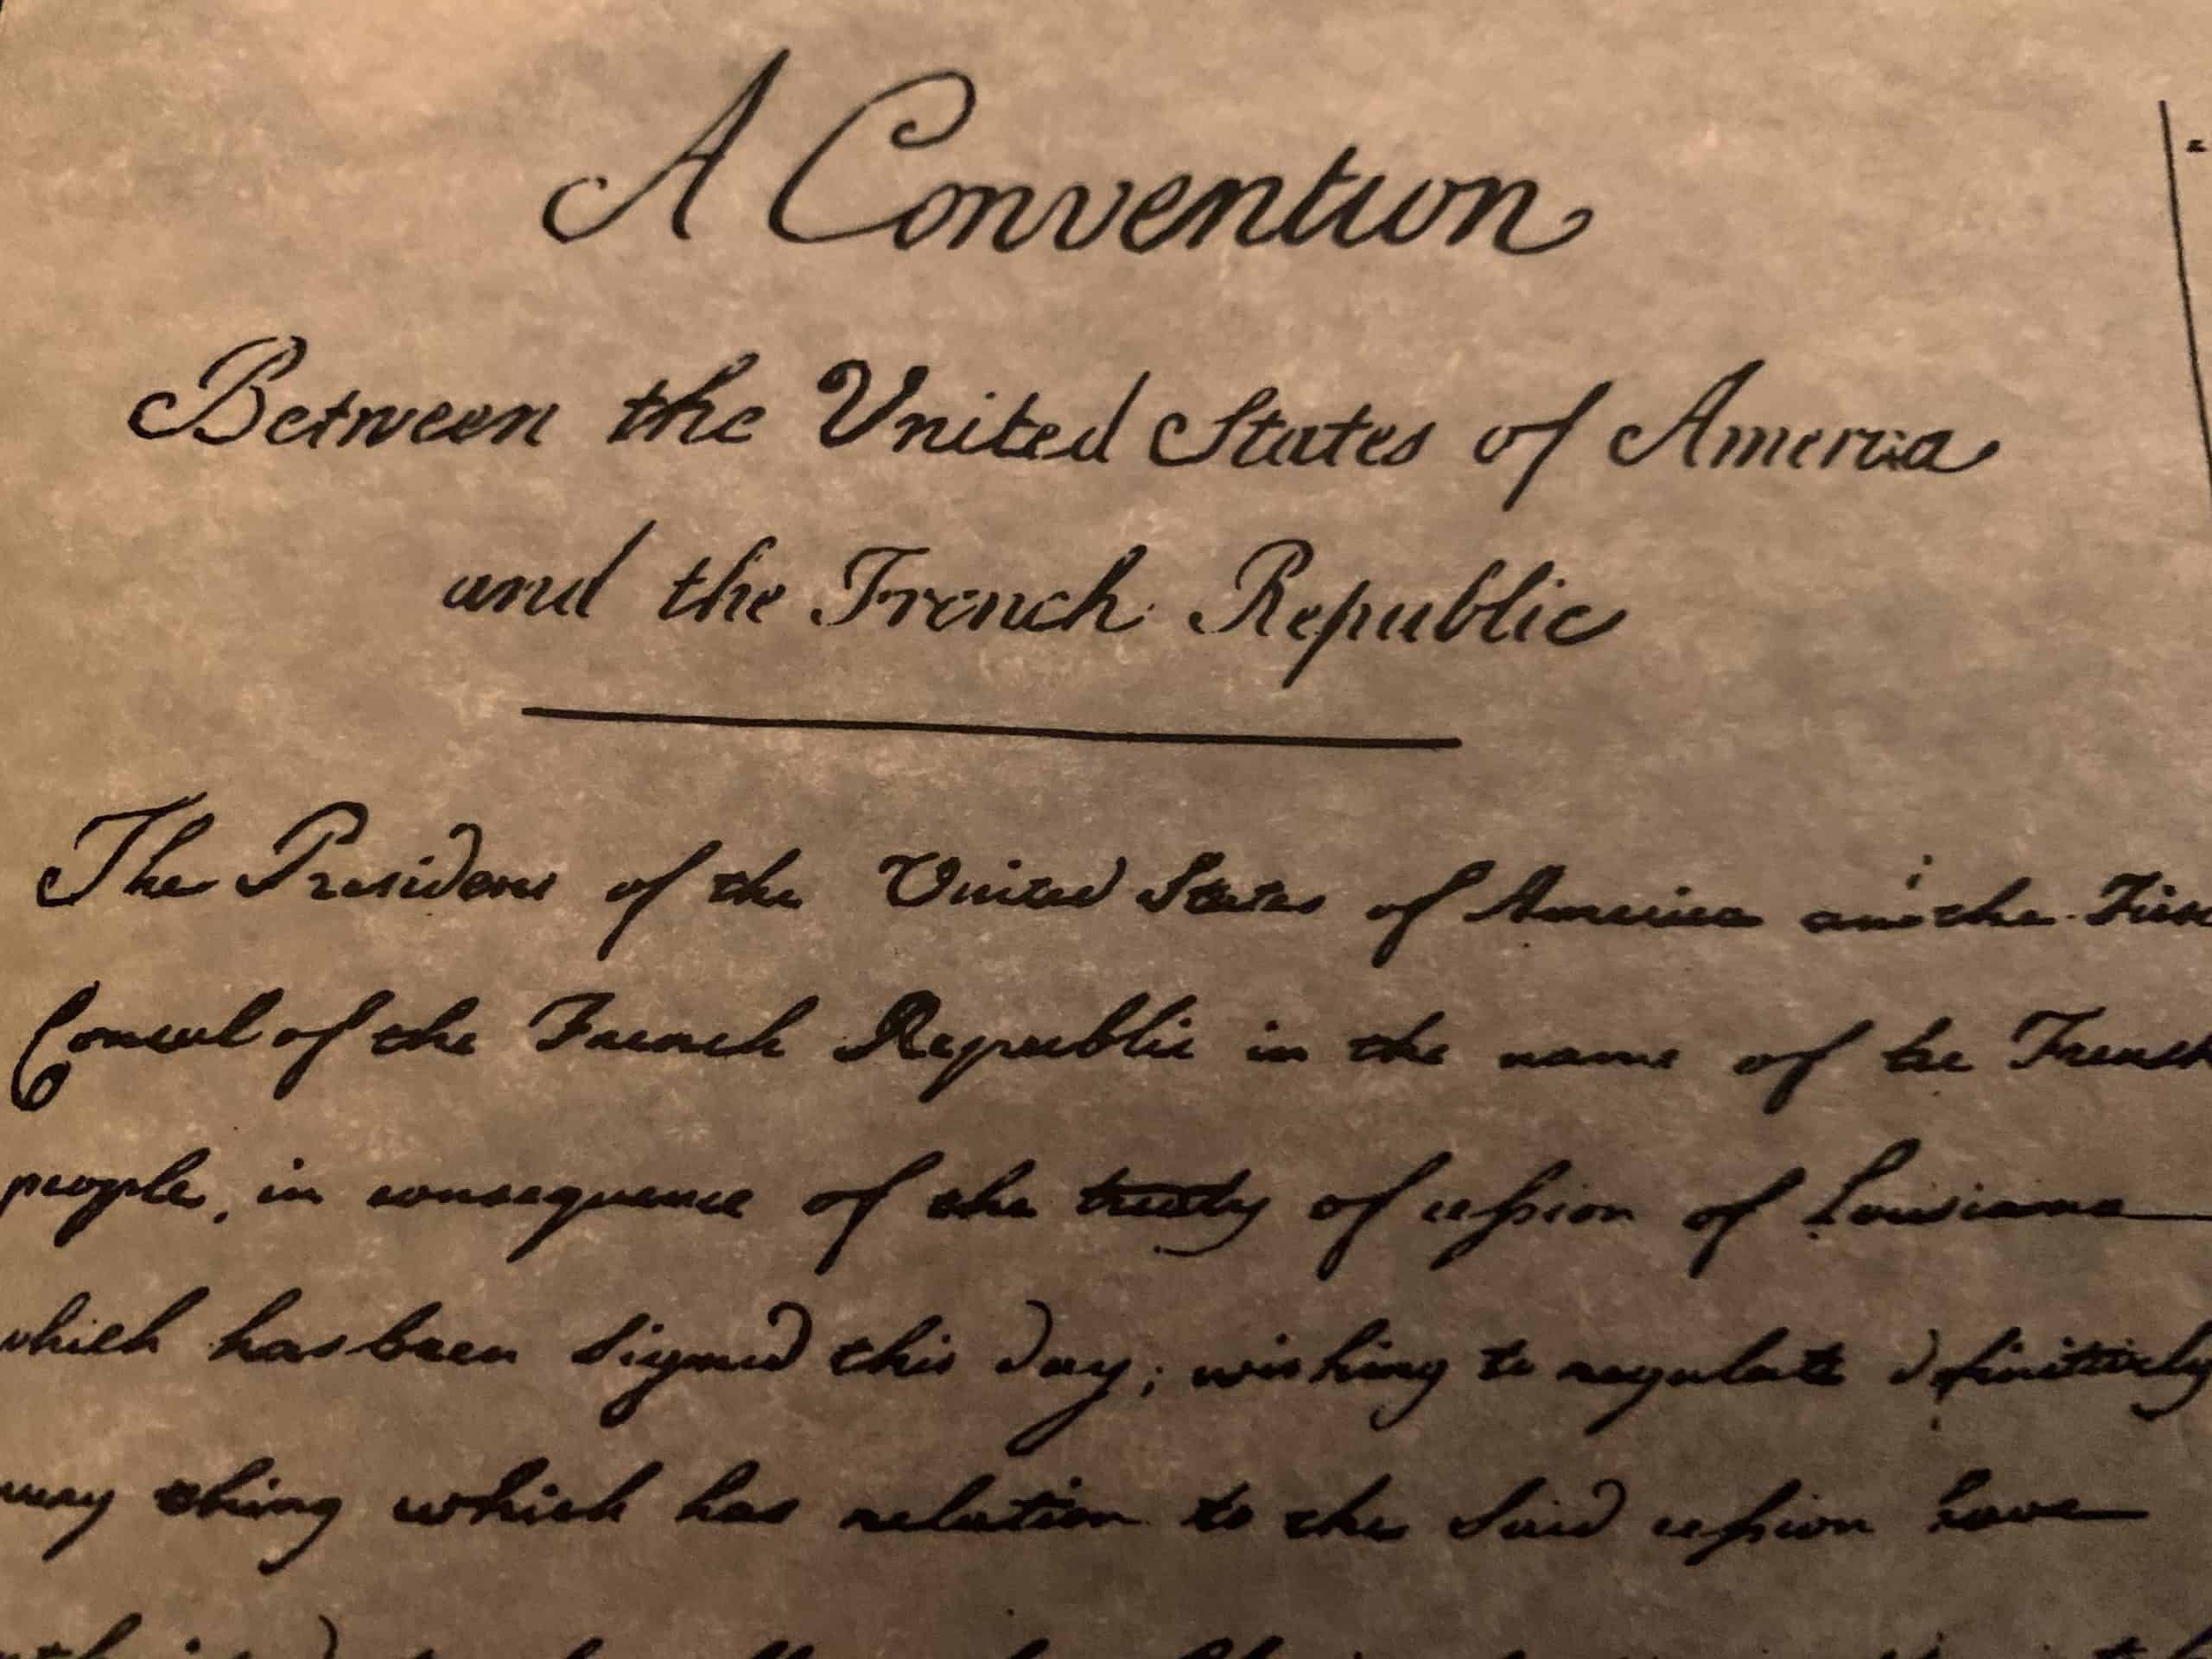 A Convention
Between the United States of America
and the French Republic
The President of the United States of America and the First
Consul of the French Republic in the name of the French
people, in consequence of the treaty of cession of Louisiana
which has been Signed this day; wishing to regulate definitively
every thing which has relation to the Said cession have